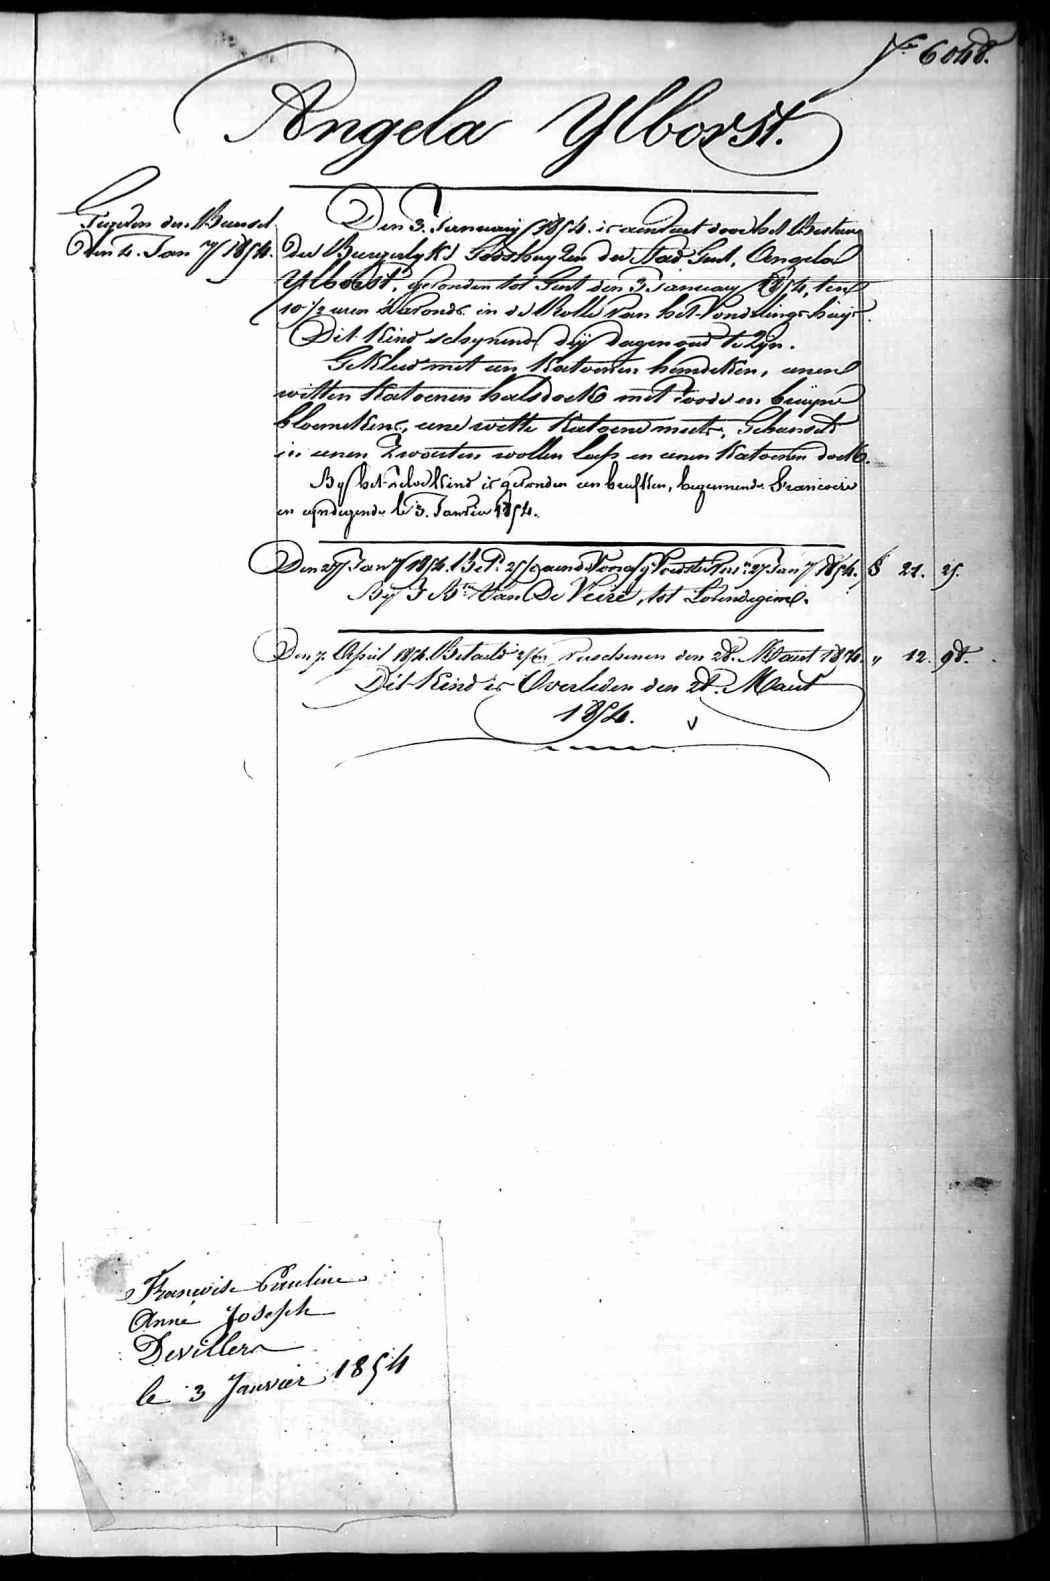 Nº 6048.
Angela Ylborst.
Gezonden den
Den 4. Jan.y 1854.
Den 3. January 1854. is aenveert door het Bestuer
der Burgerlyke Godshuyzen der Stad Gent, Angela
Ylborst, gevonden tot Gent den 3 January 1854, ten
10 1/2 uren s'avonds in de Rolle van het Vondelingshuys.
Dit Kind schynende dry dagen oud te zyn.
Gekleed met een Katoenen hemdeken, eenen
witten Katoenen halsdoek met roode en bruyne
bloemekens, eene witte Katoene muts, Gebonden
in eenen Zwarten wollen lap en eenen Katoenen doek.
By het zelve Kind is gevonden een briefken, beginnende Francoise
en eyndigende le 3. Janvier 1854.
Den 27 Jan.y 1854. 27 Jan.y 1854. 21. 25.
By J. Bte Van De Veire, tot Lovendegem.
Den 7. April 1854. Betaeld verschenen den 28. Maart 1854. " 12. 98.
Dit Kind is Overleden den 28. Maart
1854.
Francoise Pauline
Anne Joseph
Devillers
le 3 Janvier 1854